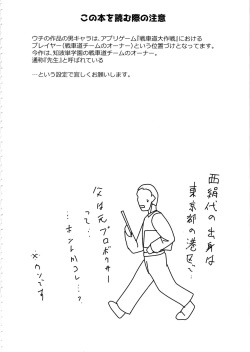 この本を読む際の注意
ウチの作品の男キャラは、アプリゲーム『戦車道大作戦』における
プレイヤー(戦車道チームのオーナー)という位置づけとなってます。
今作は、知波単学園の戦車道チームのオーナー。
通称『先生』と呼ばれている
―という設定で宜しくお願いします。
西絹代の出身は
東京都の港区で…
父は元プロボクサー
って…
…ホントかコレ…?
※ウソです